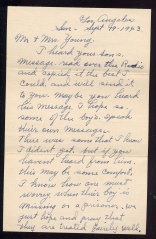 Los Angeles
Sun - Sept 19 - 1943
Mr & Mrs Young.
I heard your son's
message read over the Radio
and copied it the best I
could and will send it
to you. Maybe you heard
his message I hope so.
some of the boys speak
their own message.
There was some that I know
I didn't get, but if you
havent heard from him.
this may be some comfort,
I know how one must
worry when their boy is
missing or a prisoner. we
just hope and pray that
they are treated fairly well.